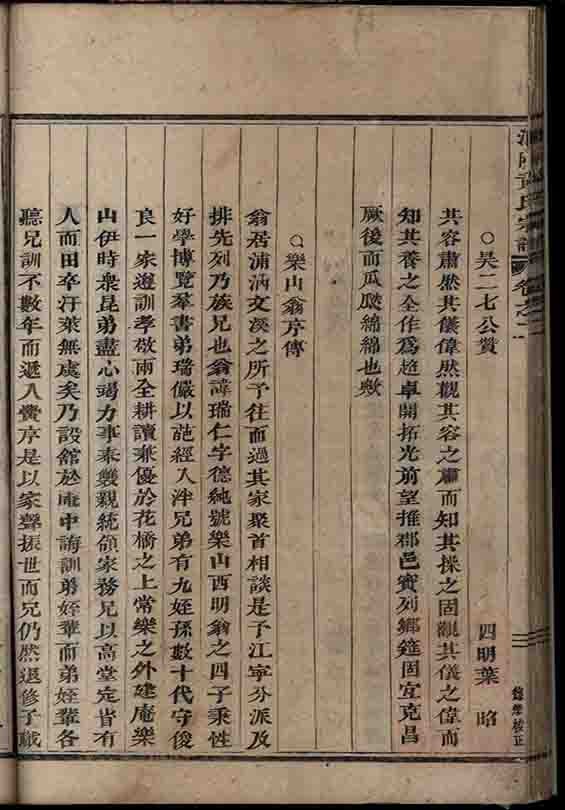 ○吳二七公贊
四明葉 昭
其容肅然其儀偉然觀其容之肅而知其操之固觀其儀之偉而
知其養之全作為超卓開拓光前望推郡邑賓列鄉筵固宜克昌
厥後而瓜瓞綿綿也歟
○樂山翁序傳
翁居浦汭文溪之所予往而過其家眾首相談是予江寧分派及
排先列乃族兄也翁諱瑞仁字德純號樂山西明翁之四子秉性
好學博覽羣書弟瑞儼以葩經入泮兄弟有九姪孫數十代守俊
良一家遵訓孝敬兩全耕讀兼優於花橋之上常樂之外建庵樂
山伊時衆昆弟盡心竭力事奉雙親統領家務兄以高堂定皆有
人而田卒汙萊無處矣乃設館於庵中誨訓弟姪輩而弟姪輩各
聽兄訓不數年而遞入黌序是以家聲振世而兄仍然退修子職
氏宗譜 卷之二